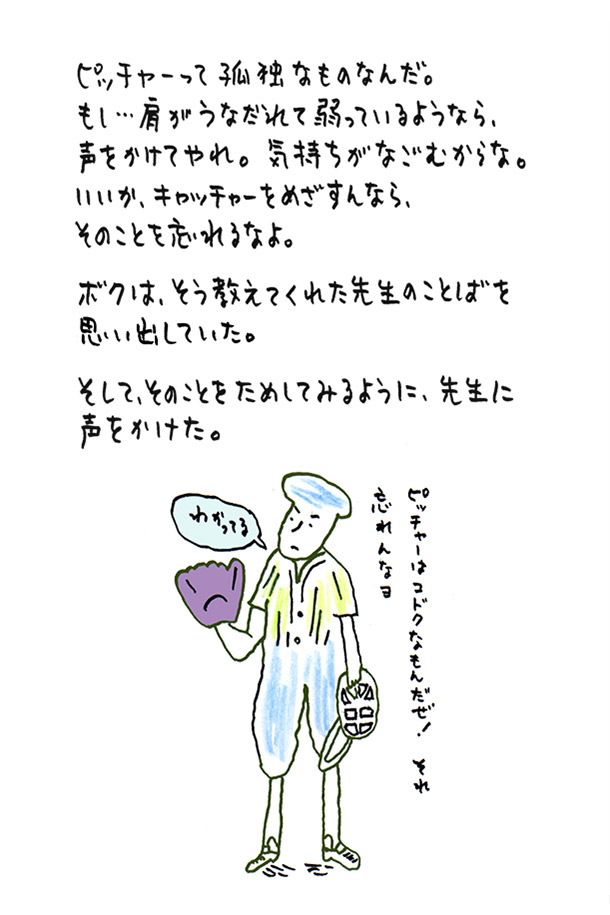 ピッチャーって孤独なものなんだ。
もし…肩がうなだれて弱っているようなら、
声をかけてやれ。気持ちがなごむからな。
いいか、キャッチャーをめざすんなら、
そのことを忘れるなよ。
ボクは、そう教えてくれた先生のことばを
思い出していた。
そして、そのことをためしてみるように、先生に
声をかけた。
わかってる
ピッチャーはコドクなもんだぜ！それ
忘れんなヨ